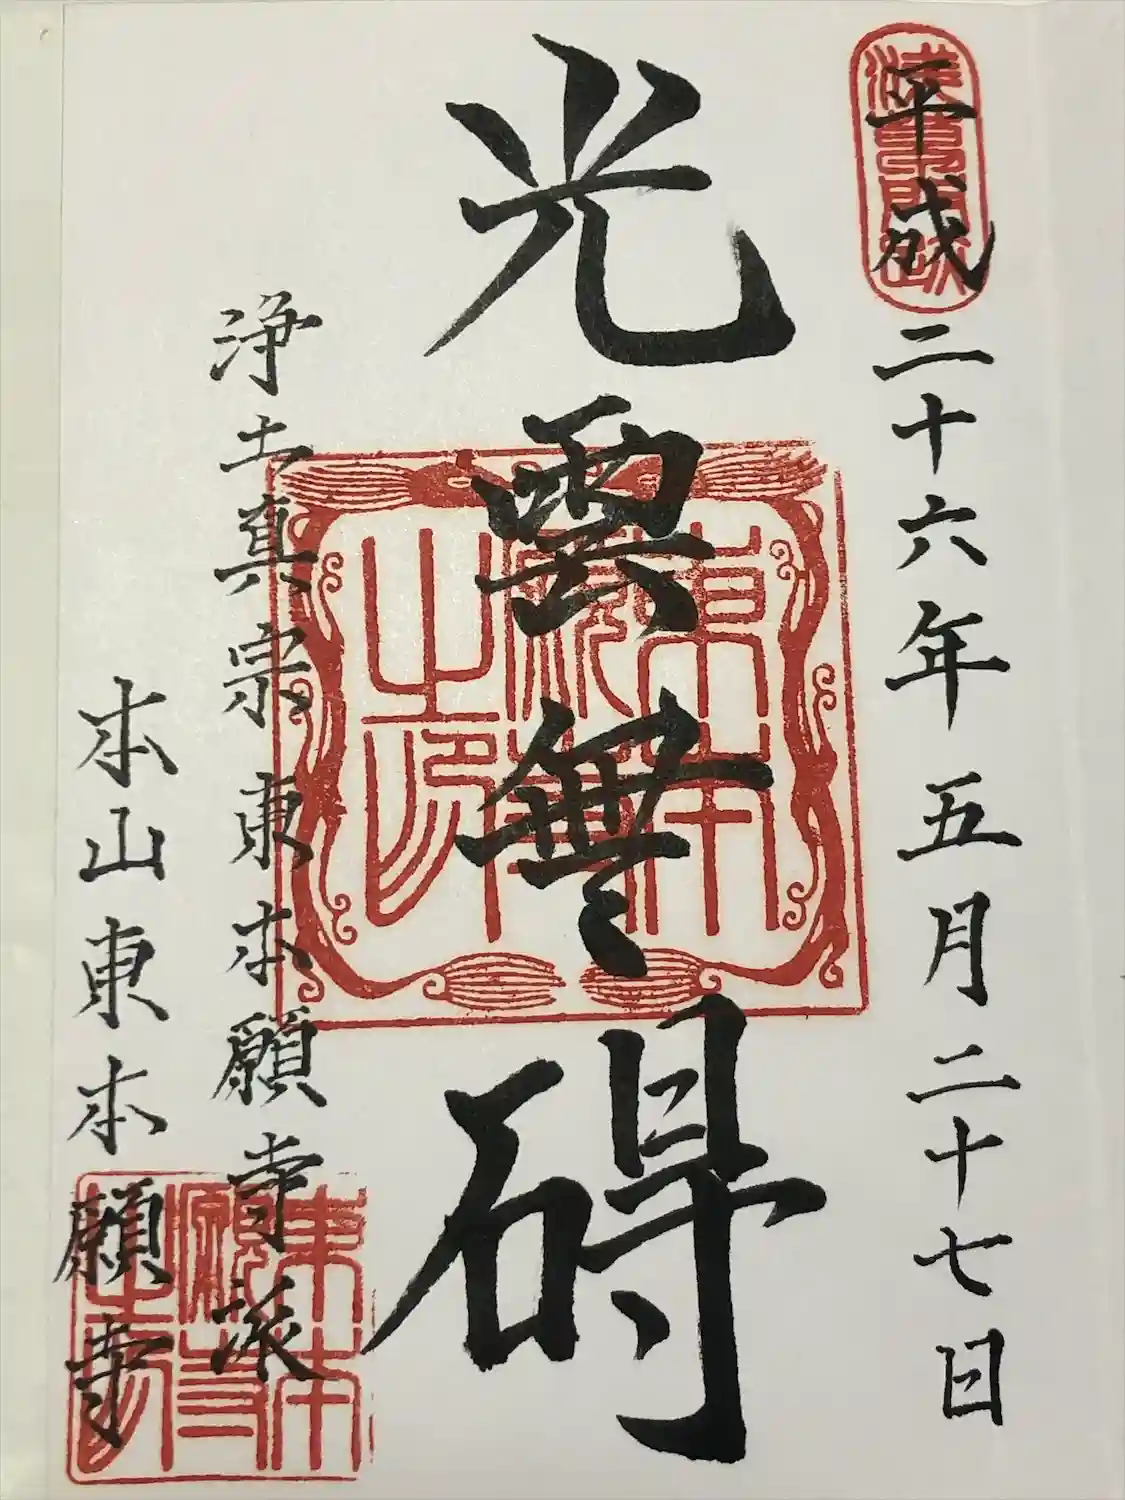 平成二十六年五月二十七日
光雲無碍
浄土真宗東本願寺派
本山東本願寺
浅草門跡
東本願寺之印
東本願寺之印